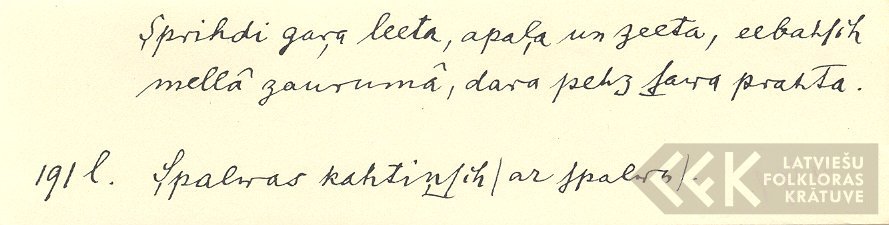 Sprihdi gaŗa leeta, apaļa un zeeta, eebahſih
mellâ zaurumâ, dara pehz ſawa prahta.
191 l. Spalwas kahtinſih / ar ſpalwu /.
LATVIEŠU
FOLKLORAS
KRĀTUVE